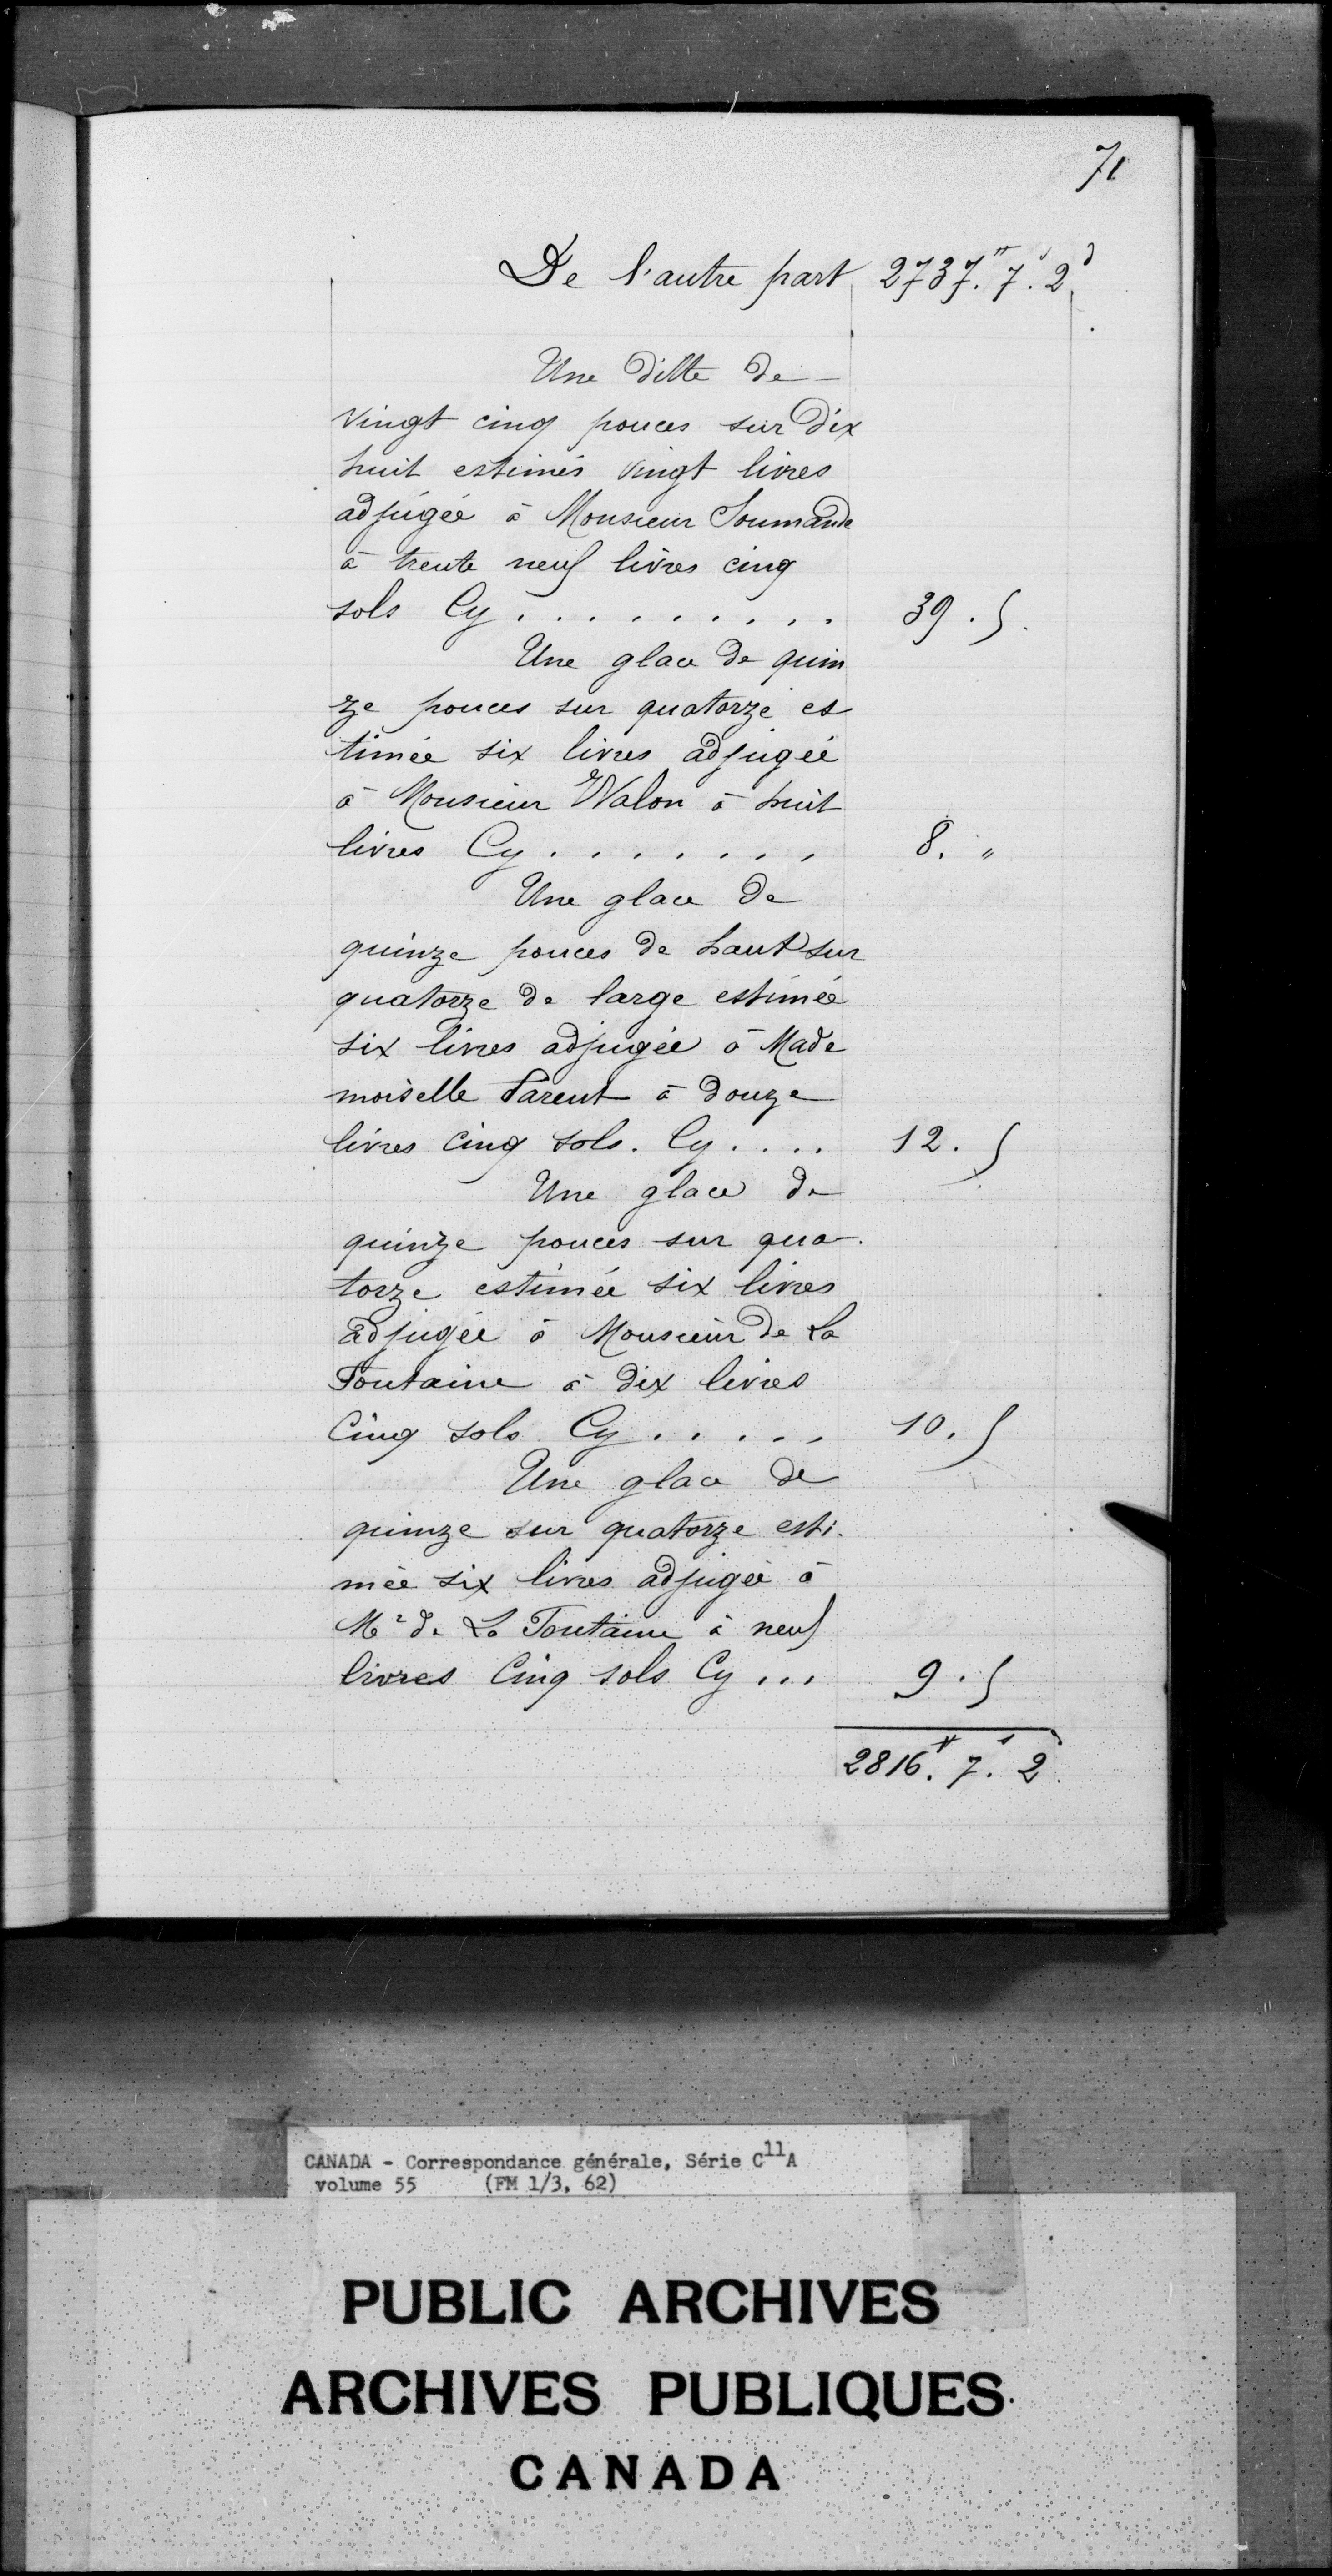 71
De l'autre part 2737.ᵗᵗ 7.ˢ 2.ᵈ
Une ditte de
vingt cinq pouces sur dix
huit estimés vingt livres
adjugée à Monsieur Soumande
à trente neuf livres cinq
sols Cy . . . . . . . . . 39 . 5.
Une glace de quin
ze pouces sur quatorze es
timée six livres adjugée
à Monsieur Walon à huit
livres Cy . . . . . . . 8. "
Une glace de
quinze pouces de haut sur
quatorze de large estimée
six livres adjugée à Made
moiselle Parent à douze
livres cinq sols. Cy . . . . 12. 5
Une glace de
quinze pouces sur qua-
torze estimée six livres
adjugée à Monsieur de La
Fontaine à dix livres
Cinq sols Cy . . . . . 10. 5
Une glace de
quinze sur quatorze esti-
mée six livres adjugée à
Mʳ de La Fontaine à neuf
livres Cinq sols Cy ... 9. 5
2816.ᵗᵗ 7.ˢ 2ᵈ
CANADA - Correspondance générale, Série C¹¹A
volume 55 (FM 1/3, 62)
PUBLIC ARCHIVES
ARCHIVES PUBLIQUES
CANADA